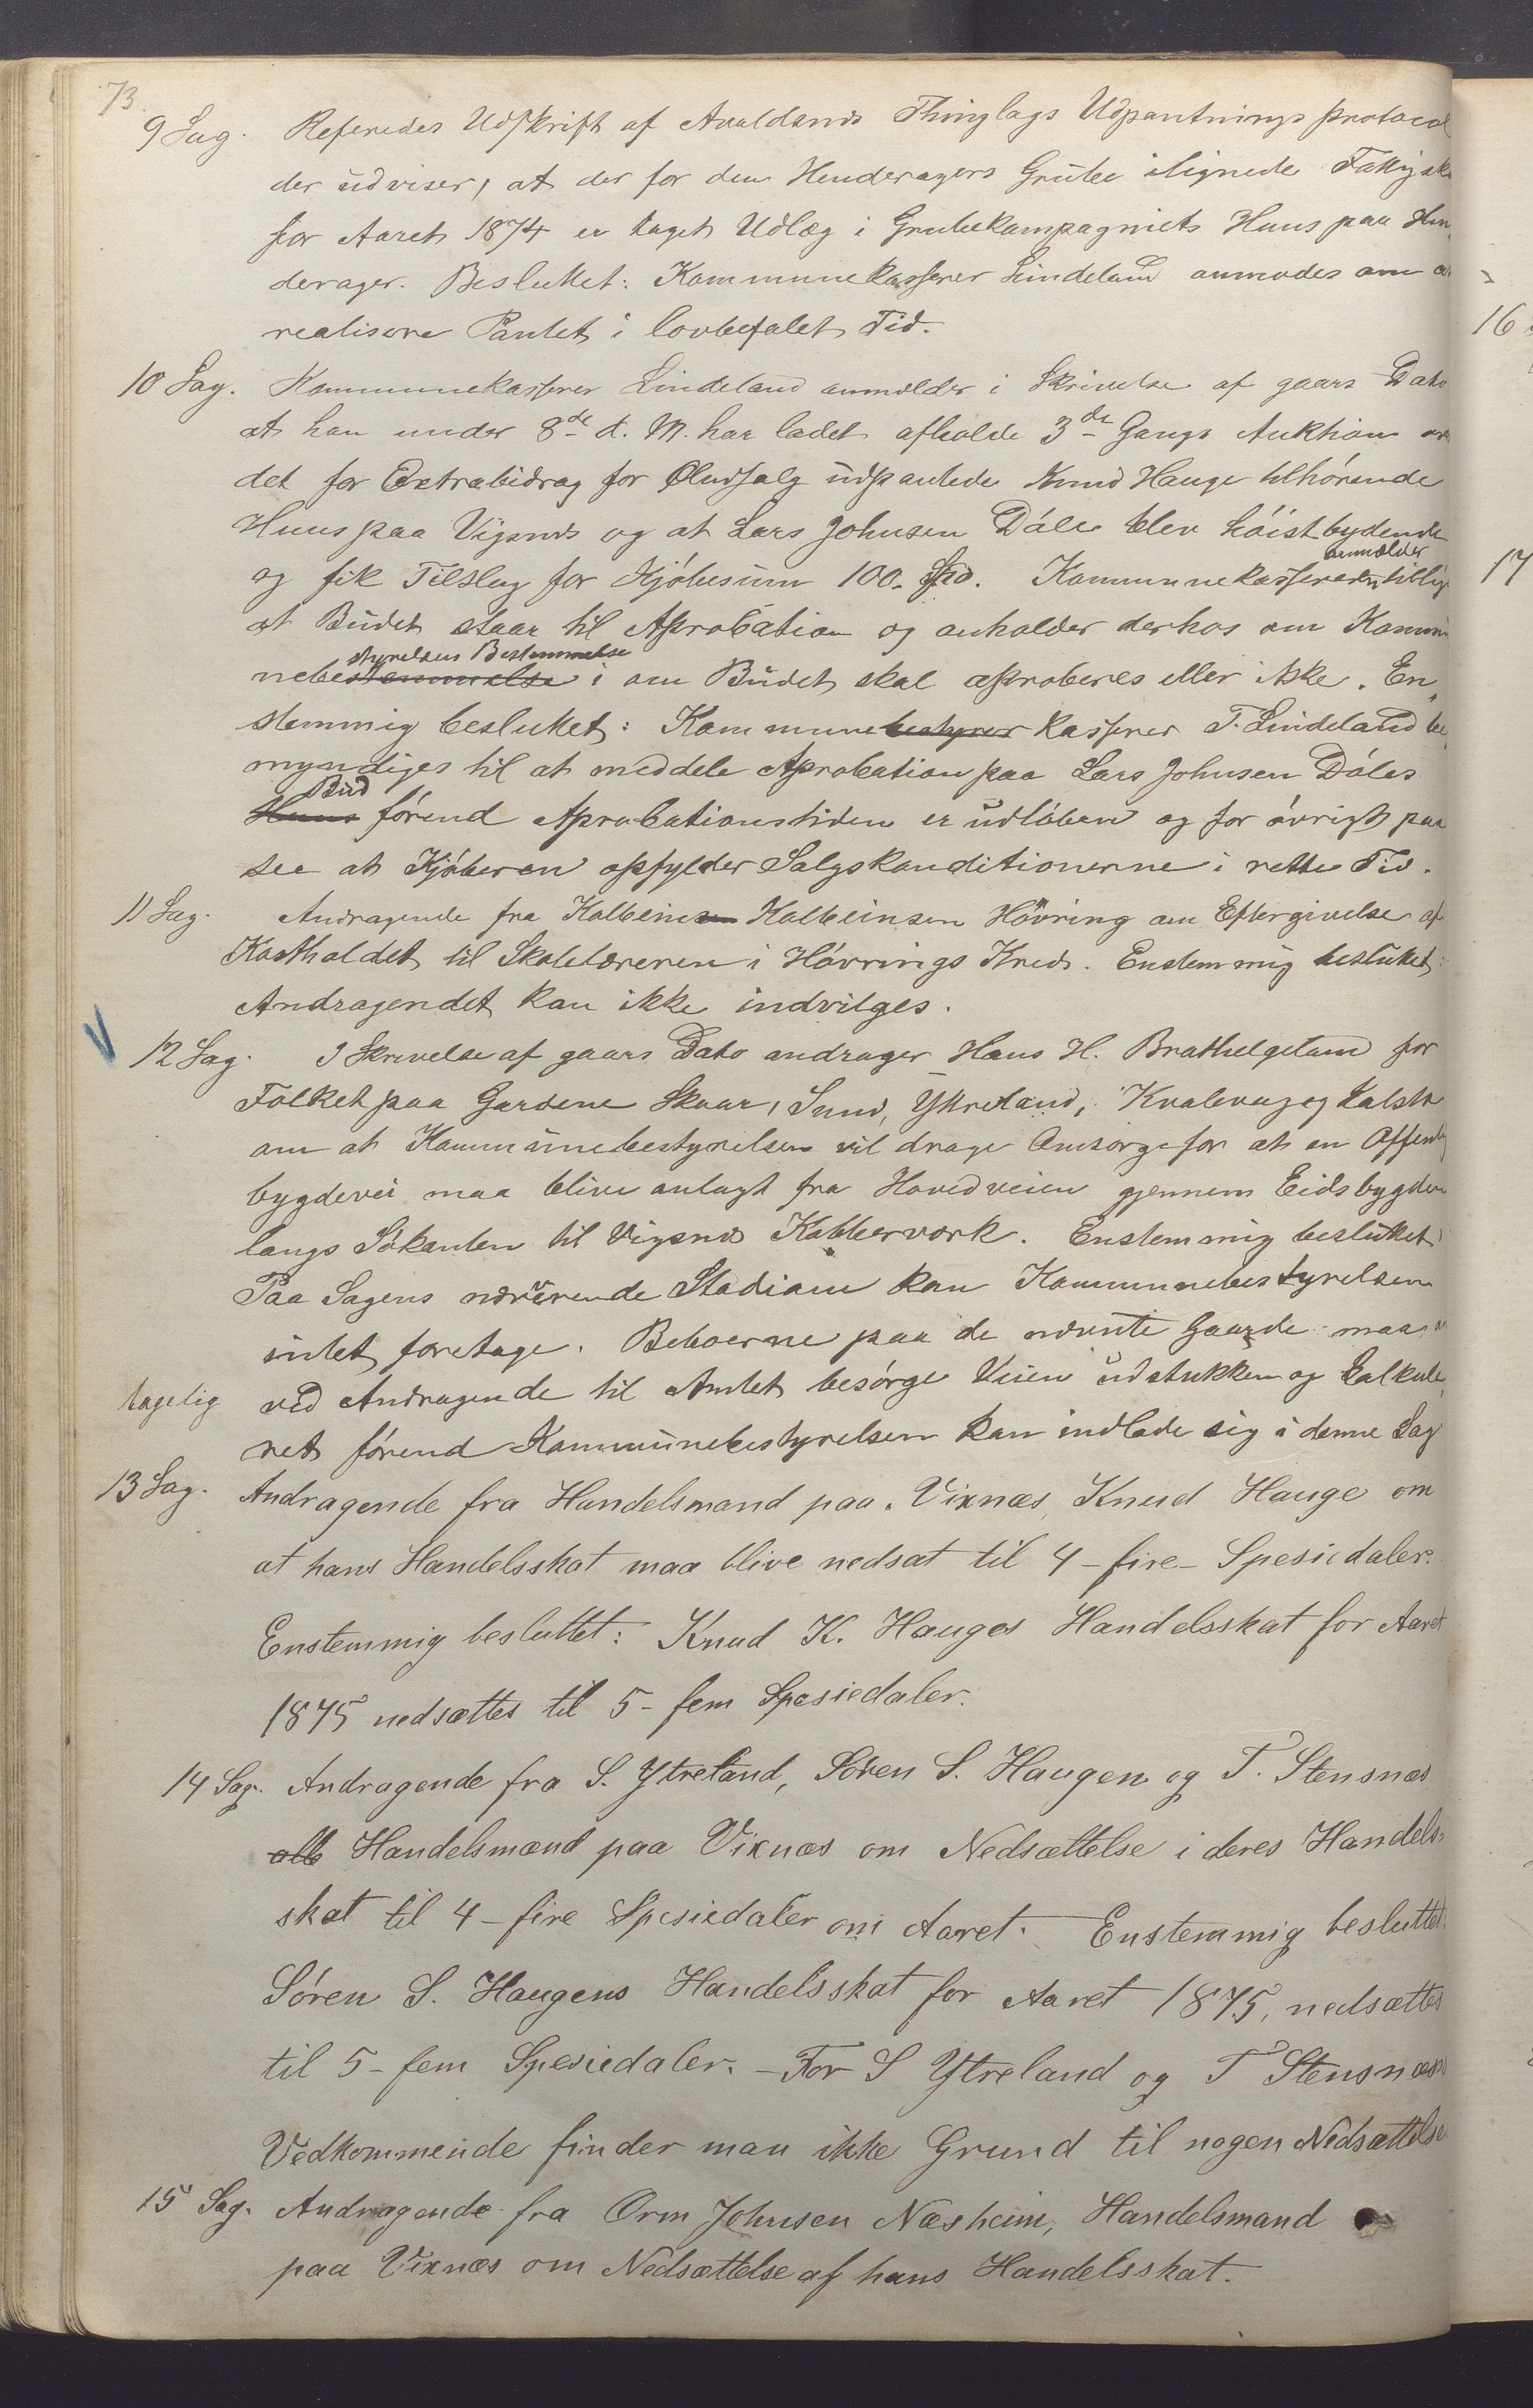 73.
9 Sag. Referedes Udskrift af Avaldsnds Thinglags Udpantnings protocol
der udviser, at der for den Henderagers Grube ilignede Fattigsk
for Aaret 1874 er taget Udlæg i Grubekompagniets Huus paa Hen
derager. Besluttet: Kommunekasserer Lindeland anmodes om a
realisere Pantet i lovbefalet Tid.
10 Sag. Kommunekasserer Lindeland anmelder i Skrivelse af gaars Dato
at han under 8de d. M. har ladet afholde 3die Gangs Auktion ov
det for Extrabidrag for Øludsalg udpantede Knud Hauge tilhørende
Huus paa Vigsnds og at Lars Johnsen Dále blev høistbydende
og fik Tilslag for Kjøbesum 100- Spd. Kommunekassereren anmelder tillig
at Budet staar til Aprobation og anholder derhos om Kommu
nebestemmelse styrelsens Bestemmelse i om Budet skal aproberes eller ikke. En„
stemmig besluttet: Kommunebestyrer kasserer T. Lindeland be„
myndiges til at meddele Aprobation paa Lars Johnsen Dáles
Huus Bud førend Aprobationstiden er udløben og for øvrigt paa
see at Kjøberen opfylder Salgskonditionerne i rette Tid.
11 Sag. Andragende fra Kolbeinsen Kolbeinsen Høvring om Eftergivelse af
Kostholdet til Skolelæreren i Høvrings Kreds. Enstemmig besluttet:
Andragendet kan ikke indvilges.
12 Sag. I Skrivelse af gaars Dato andrager Hans H. Brathelgeland for
Folket paa Gardene Skaar, Sund, Yttreland, Kvalevag og Kalstø
om at Kommunebestyrelsen vil drage Omsorg for at en Offentlig
bygdevei maa blive anlagt fra Hovedveien gjennem Eidsbygden
langs Søkanten til Vigsnds Kobberværk. Enstemmig besluttet
Paa Sagens nærværende Stadium kan Kommunebestyrelsen
intet foretage. Beboerne paa de nævnte Gaarde maa
tagelig ved Andragende til Amtet besørge Veien udstukken og Kalkule„
ret førend Kommunebestyrelsen kan indlade sig i denne Sag
13 Sag. Andragende fra Handelsmand paa Vixnæs, Knud Hauge om
at hans Handelsskat maa blive nedsat til 4 - fire - Spesiedaler.
Enstemmig besluttet: Knud K. Hauges Handelsskat for Aaret
1875 nedsættes til 5 - fem Spesiedaler.
14 Sag. Andragende fra S. Ytreland, Søren S. Haugen og T. Stensnæs
alle Handelsmænd paa Vixnæs om Nedsættelse i deres Handels„
skat til 4 - fire Spesiedaler om Aaret. Enstemmig besluttet:
Søren S. Haugens Handelsskat for Aaret 1875, nedsættes
til 5 - fem Spesiedaler. - For S Ytreland og T Stensnæs
Vedkommende finder man ikke Grund til nogen Nedsættelse.
15 Sag. Andragende fra Orm Johnsen Næsheim, Handelsmand
paa Vixnæs om Nedsættelse af hans Handelsskat.
16
17